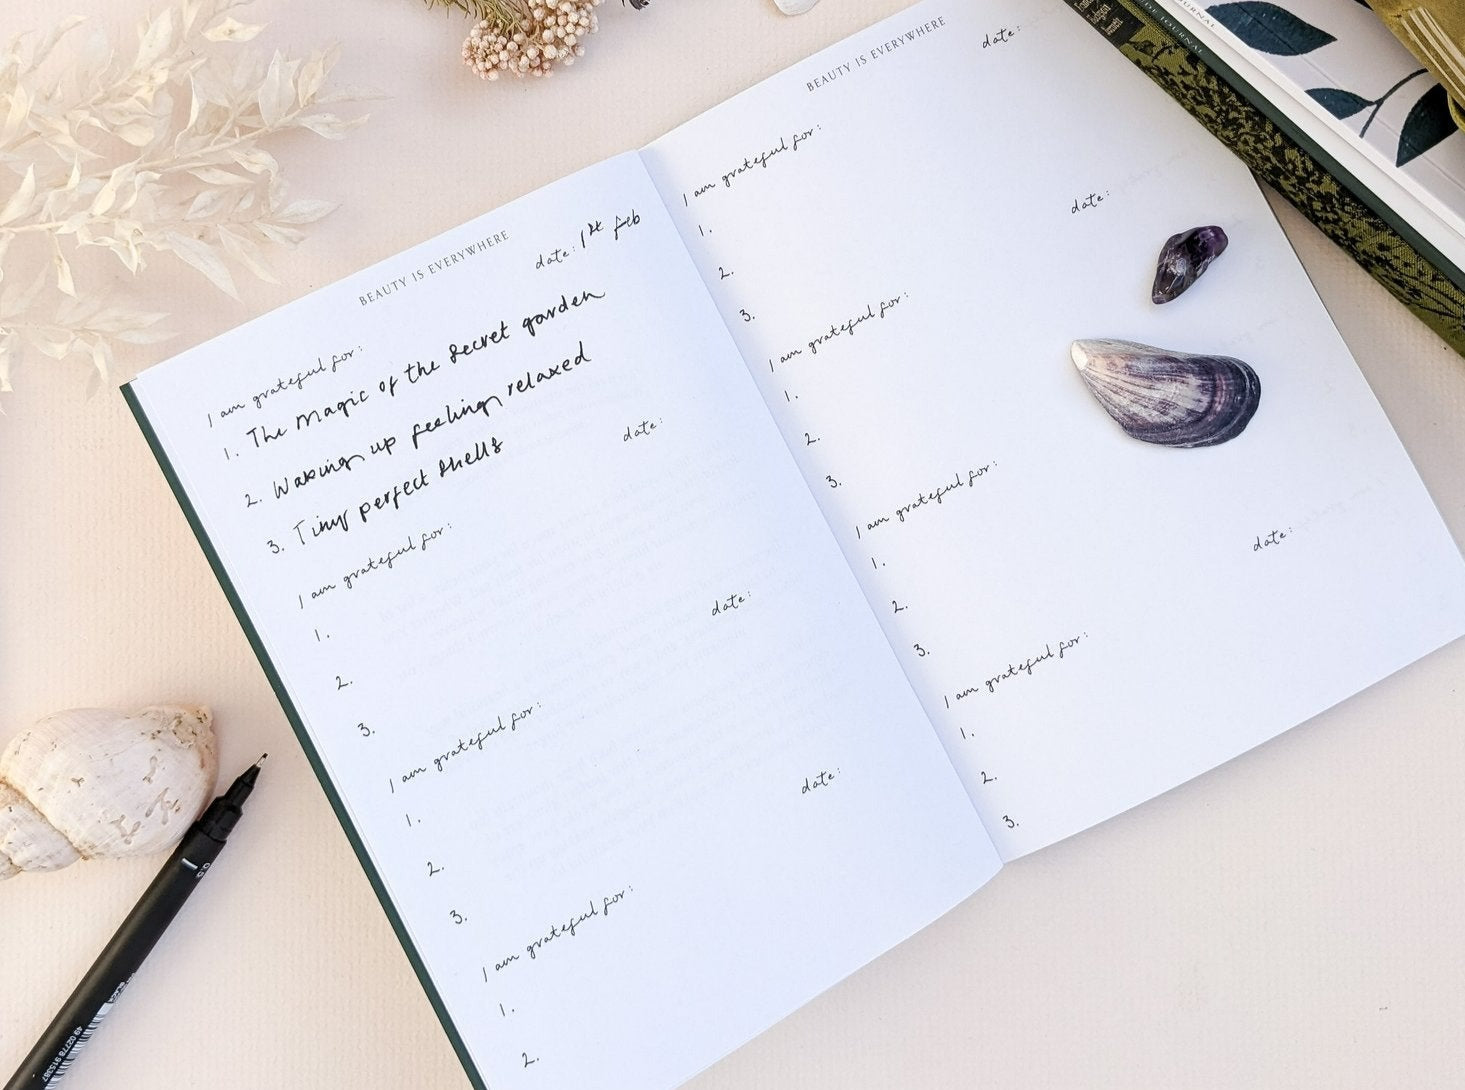 BEAUTY IS EVERYWHERE
date: 1st Feb
I am grateful for:
1. The magic of the secret garden
2. Waking up feeling relaxed
3. Tiny perfect shells
date:
I am grateful for:
1.
2.
3.
date:
I am grateful for:
1.
2.
3.
date:
I am grateful for:
1.
2.
BEAUTY IS EVERYWHERE
date:
I am grateful for:
1.
2.
3.
date:
I am grateful for:
1.
2.
3.
I am grateful for:
1.
2.
3.
date:
I am grateful for:
1.
2.
3.
JOURNAL
JOURNAL
Hodgson
Burnett
0.5
BLACK
49 02778 915387